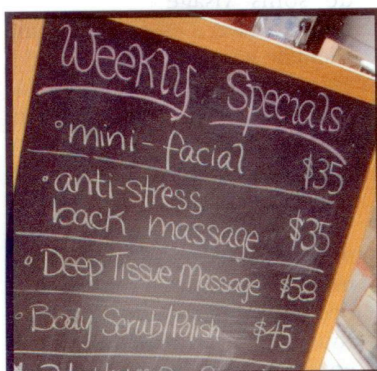 Weekly Specials
° mini-facial $35
° anti-stress
back massage $35
° Deep Tissue Massage $58
° Body Scrub/Polish $45